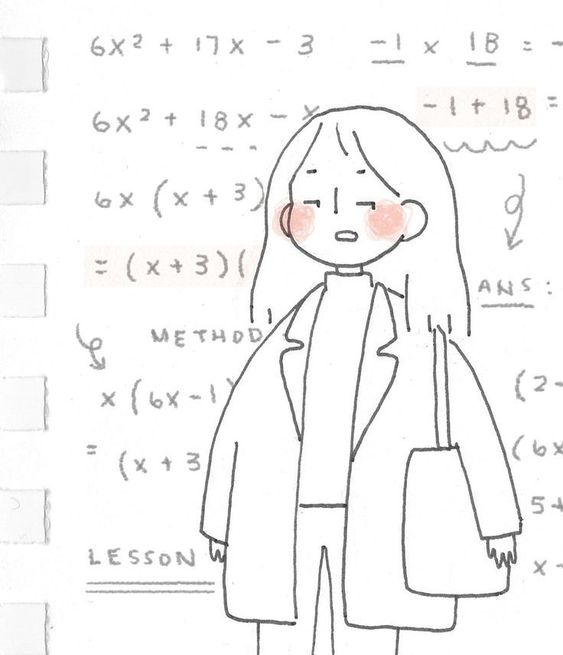 6x² + 17x - 3
-1 x 18 = -
6x² + 18x - x
-1 + 18 =
6x (x + 3)
= (x + 3)(
ANS:
METHOD
x (6x - 1)
(2-
= (x + 3
(6x
5+
LESSON
x -